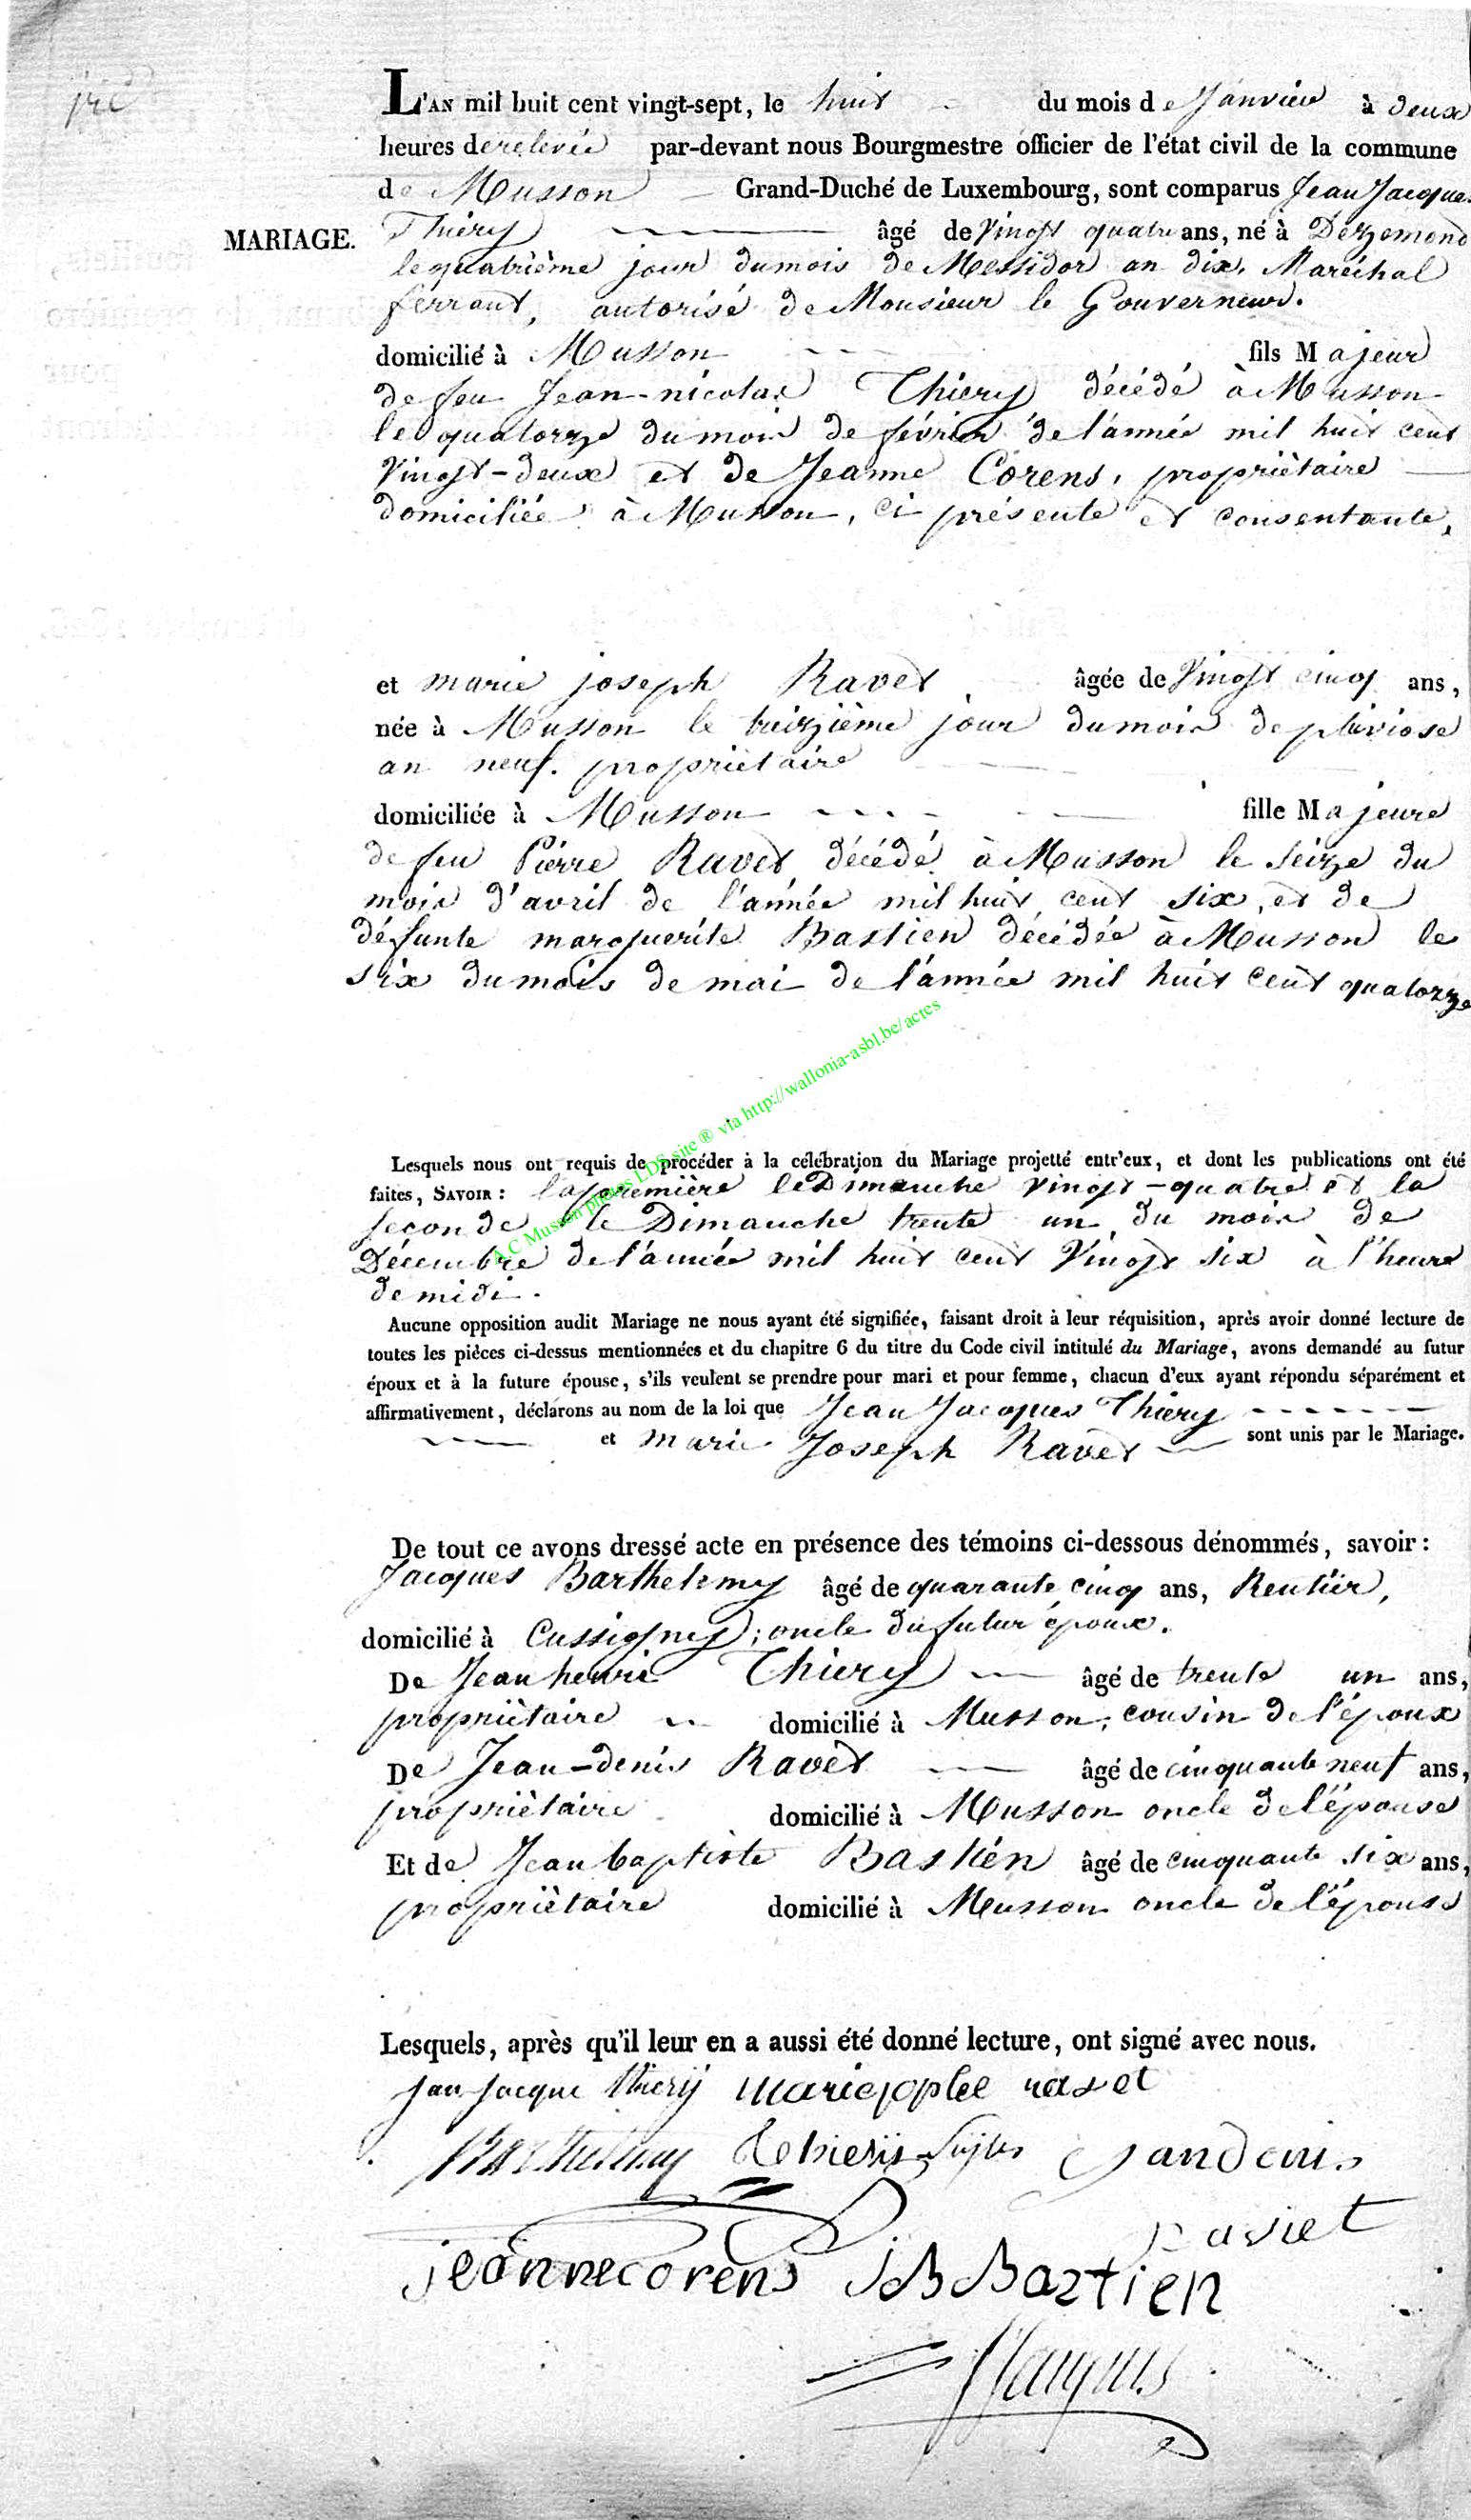 L'AN mil huit cent vingt-sept, le huit du mois de Janvier à deux
heures de relevée par-devant nous Bourgmestre officier de l'état civil de la commune
de Musson Grand-Duché de Luxembourg, sont comparus Jean Jacques
MARIAGE. Thiery âgé de Vingt quatre ans, né à Dezzemond
le quatrième jour du mois de Messidor an dix, Maréchal
ferrant, autorisé de Monsieur le Gouverneur.
domicilié à Musson fils Majeur
de feu Jean-nicolas Thiery décédé à Musson
le quatorze du mois de février de l'année mil huit cent
Vingt-deux et de Jeanne Corens, propriètaire
domiciliée à Musson, ci présente et consentante,
et marie joseph Ravet âgée de Vingt cinq ans,
née à Musson le treizième jour du mois de pluviose
an neuf. propriètaire
domiciliée à Musson fille Majeure
de feu Pierre Ravet décédé à Musson le seize du
mois d'avril de l'année mil huit cent six, et de
défunte marguerite Bastien décédée à Musson le
six du mois de mai de l'année mil huit cent quatorze
A.C Musson photos LDS site ® via http://wallonia-asbl.be/actes
Lesquels nous ont requis de procéder à la célébration du Mariage projetté entr'eux, et dont les publications ont été
faites, SAVOIR : la première le Dimanche vingt-quatre et la
seconde le Dimanche trente un du mois de
Décembre de l'année mil huit cent Vingt six à l'heure
de midi.
Aucune opposition audit Mariage ne nous ayant été signifiée, faisant droit à leur réquisition, après avoir donné lecture de
toutes les pièces ci-dessus mentionnées et du chapitre 6 du titre du Code civil intitulé du Mariage, avons demandé au futur
époux et à la future épouse, s'ils veulent se prendre pour mari et pour femme, chacun d'eux ayant répondu séparément et
affirmativement, déclarons au nom de la loi que Jean Jacques Thiery
et marie Joseph Ravet sont unis par le Mariage.
De tout ce avons dressé acte en présence des témoins ci-dessous dénommés, savoir :
Jacques Barthelemy âgé de quarante cinq ans, Rentier,
domicilié à Cussigny ; oncle du futur époux.
De Jean henri Thiery âgé de trente un ans,
propriètaire domicilié à Musson, cousin de l'époux
De Jean-denis Ravet âgé de cinquante neuf ans,
propriètaire domicilié à Musson oncle de l'épouse
Et de Jean baptiste Bastien âgé de cinquante six ans,
propriètaire domicilié à Musson oncle de l'épouse
Lesquels, après qu'il leur en a aussi été donné lecture, ont signé avec nous.
jean jacque thiery marie joplee ravet
Barthelemy Thiery jandenis
raviet
jeannecorens JB Bastien